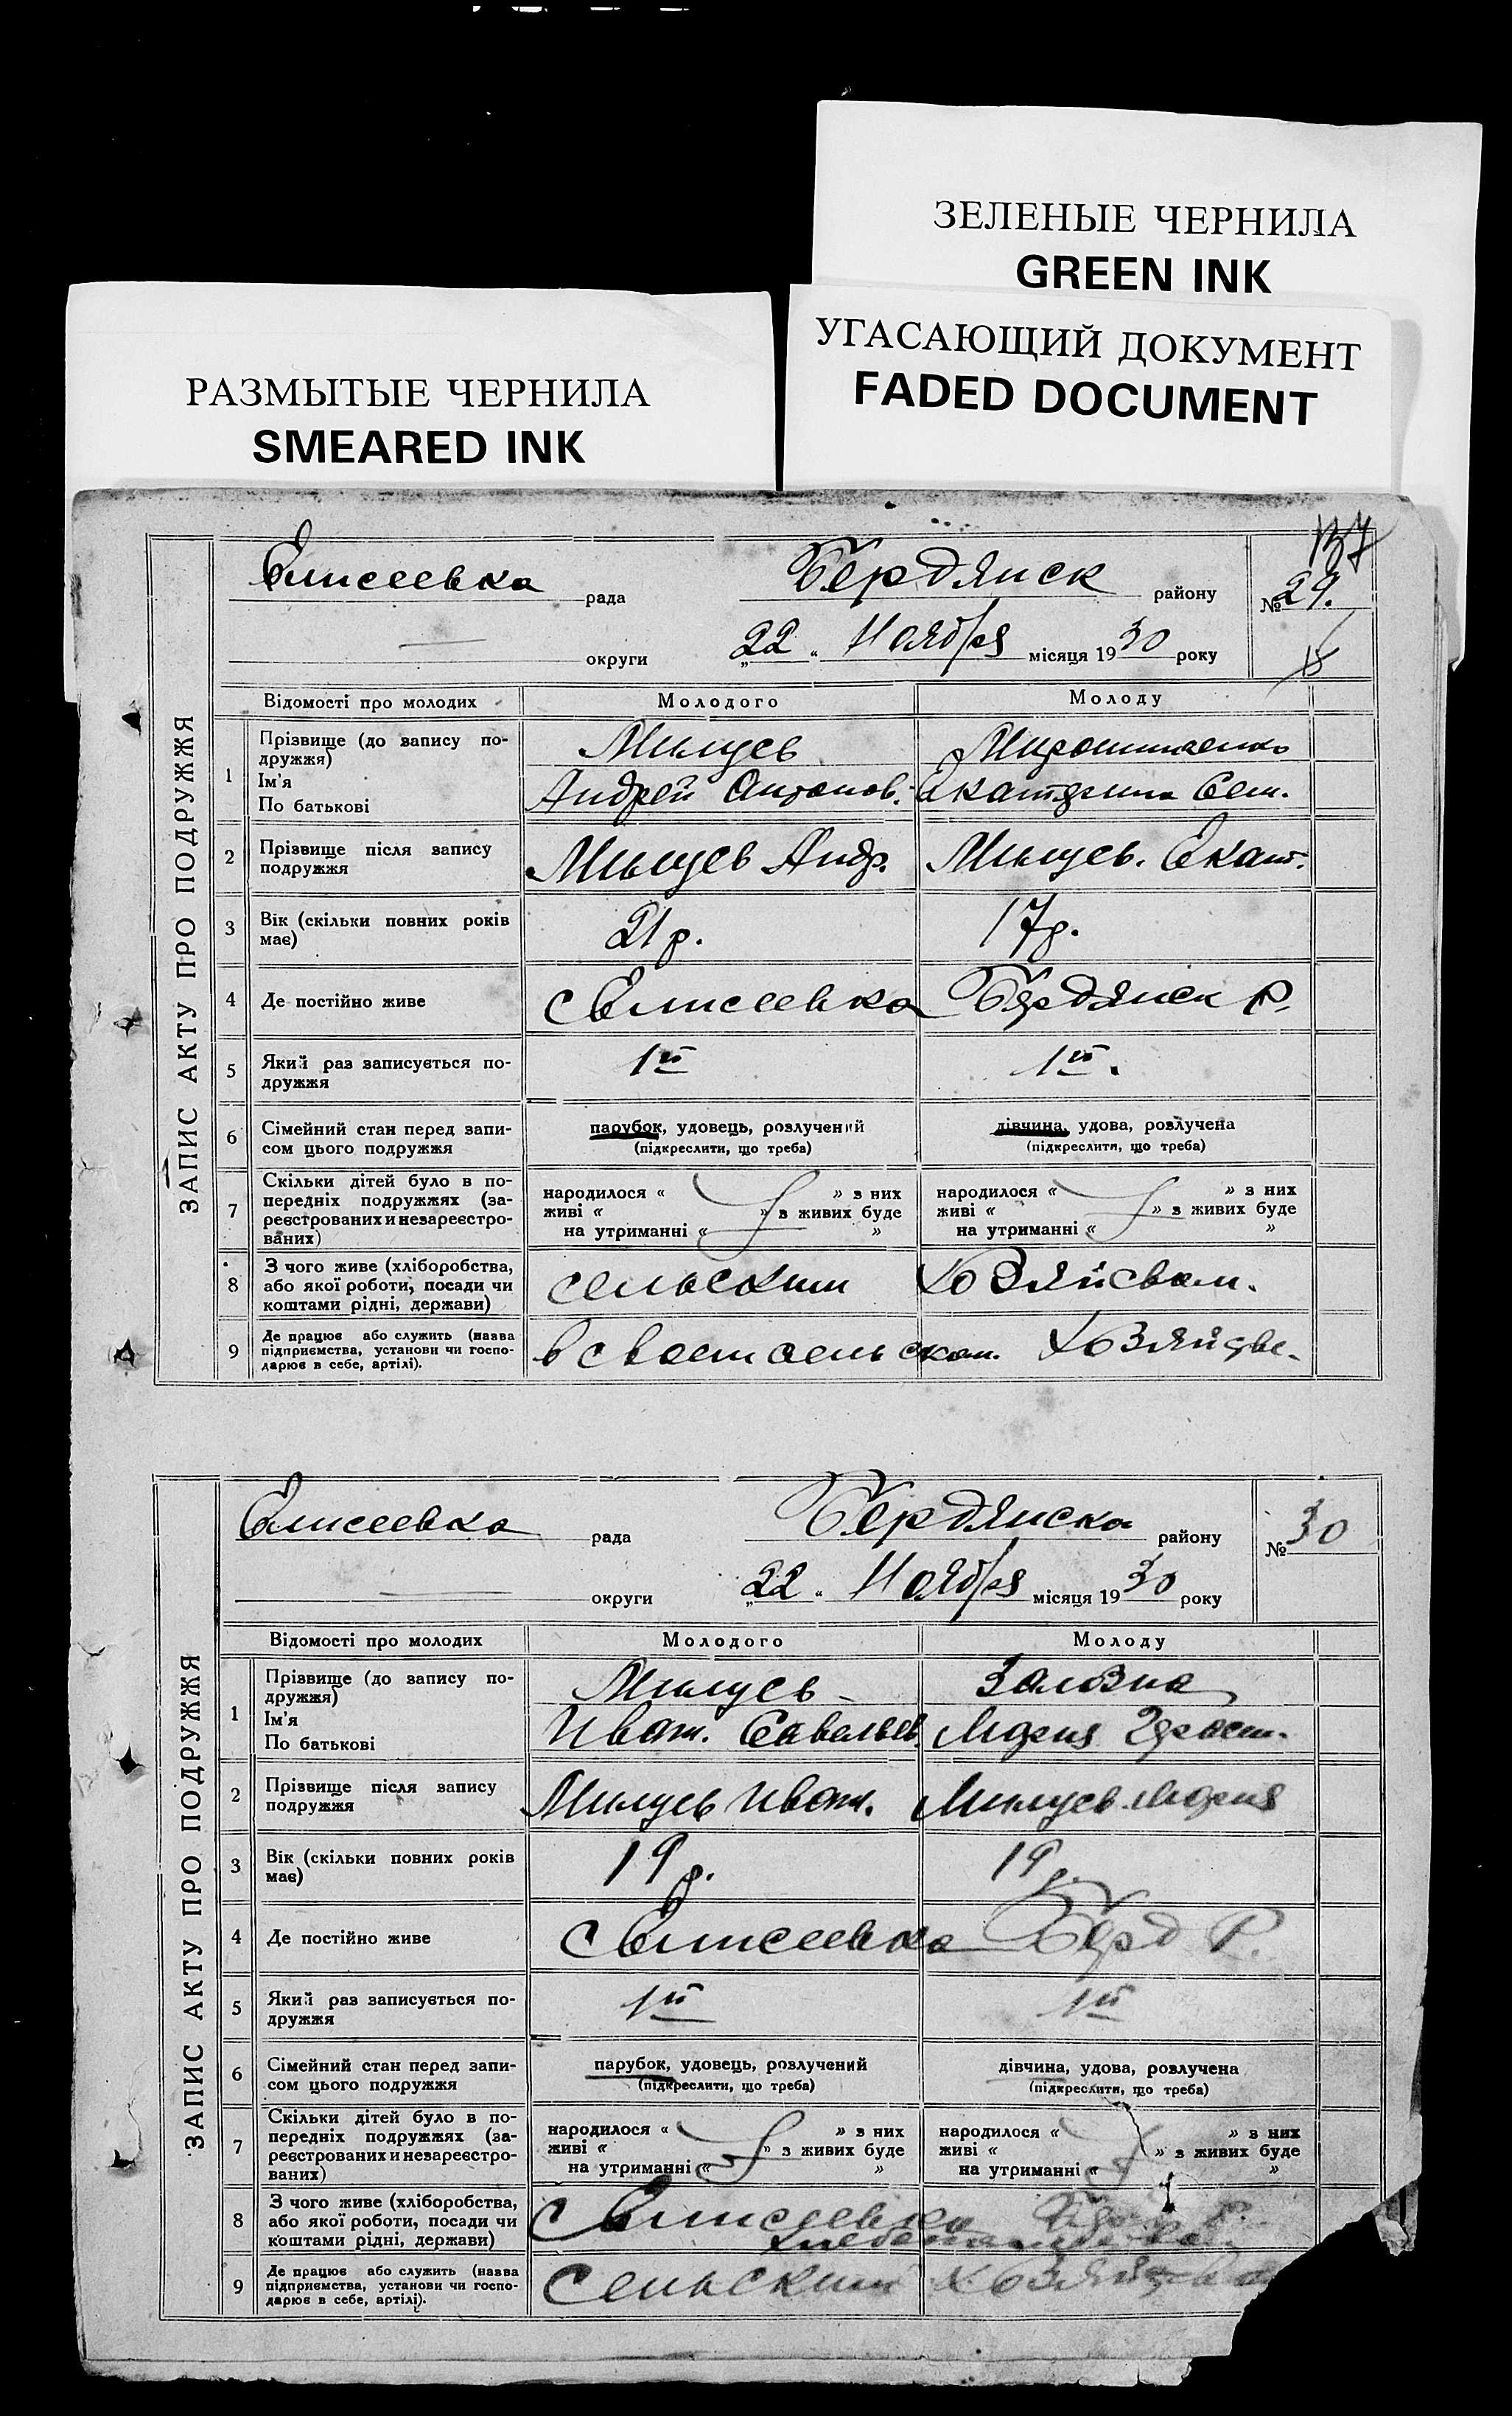 ЗЕЛЕНЫЕ ЧЕРНИЛА
GREEN INK
УГАСАЮЩИЙ ДОКУМЕНТ
FADED DOCUMENT
РАЗМЫТЫЕ ЧЕРНИЛА
SMEARED INK
ЗАПИС АКТУ ПРО ПОДРУЖЖЯ
137
Елисеевка рада Бердянск району № 29.
округи „22“ Ноября місяця 1930 року
Відомості про молодих Молодого Молоду
1 Прізвище (до запису по-
дружжя)
Ім'я
По батькові
Милцев Мирошниченко
Андрей Антонов. Екатерина Сем.
2 Прізвище після запису
подружжя
Милцев Андр. Милцев. Екат.
3 Вік (скільки повних років
має)
21 р. 17 р.
4 Де постійно живе с Елисеевка Бердянск Р.
5 Який раз записується по-
дружжя
1й 1й.
6 Сімейний стан перед запи-
сом цього подружжя
парубок, удовець, розлучений дівчина, удова, розлучена
(підкреслити, що треба) (підкреслити, що треба)
7 Скільки дітей було в по-
передніх подружжях (за-
реєстрованих и незареєстро-
ваних)
народилося « » з них народилося « » з них
живі « » з живих буде живі « » з живих буде
на утриманні « » на утриманні « »
8 З чого живе (хліборобства,
або якої роботи, посади чи
коштами рідні, держави)
сельским хозяйсвом.
9 Де працює або служить (назва
підприємства, установи чи госпо-
дарює в себе, артілі).
в своем сельском. хозяйстве.
ЗАПИС АКТУ ПРО ПОДРУЖЖЯ
Елисеевка рада Бердянска району № 30
округи „22“ Ноября місяця 1930 року
Відомості про молодих Молодого Молоду
1 Прізвище (до запису по-
дружжя)
Ім'я
По батькові
Милцев Залозна
Иван. Савельев. Мария
2 Прізвище після запису
подружжя
Милцев Иван. Милцев Мария
3 Вік (скільки повних років
має)
19 р. 19 р.
4 Де постійно живе с Елисеевка Берд Р.
5 Який раз записується по-
дружжя
1й 1й
6 Сімейний стан перед запи-
сом цього подружжя
парубок, удовець, розлучений дівчина, удова, розлучена
(підкреслити, що треба) (підкреслити, що треба)
7 Скільки дітей було в по-
передніх подружжях (за-
реєстрованих и незареєстро-
ваних)
народилося « » з них народилося « » з них
живі « » з живих буде живі « » з живих буде
на утриманні « » на утриманні « »
8 З чого живе (хліборобства,
або якої роботи, посади чи
коштами рідні, держави)
с Елисеевка Берд Р.
9 Де працює або служить (назва
підприємства, установи чи госпо-
дарює в себе, артілі).
Сельским